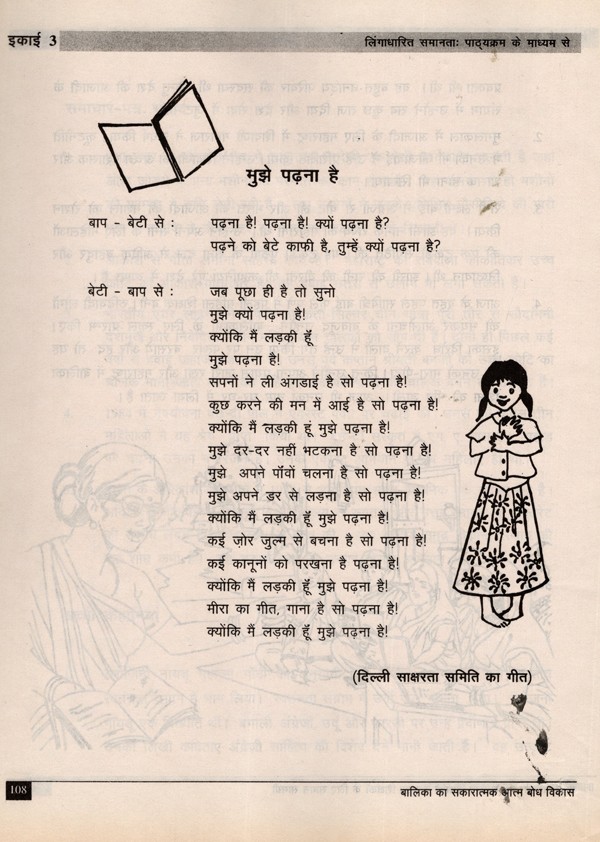 इकाई 3
लिंगाधारित समानताः पाठ्यक्रम के माध्यम से
मुझे पढ़ना है
बाप - बेटी से : पढ़ना है! पढ़ना है! क्यों पढ़ना है?
पढ़ने को बेटे काफी है, तुम्हें क्यों पढ़ना है?
बेटी - बाप से : जब पूछा ही है तो सुनो
मुझे क्यों पढ़ना है!
क्योंकि मैं लड़की हूँ
मुझे पढ़ना है!
सपनों ने ली अंगडाई है सो पढ़ना है!
कुछ करने की मन में आई है सो पढ़ना है!
क्योंकि मैं लड़की हूं मुझे पढ़ना है!
मुझे दर-दर नहीं भटकना है सो पढ़ना है!
मुझे अपने पॉवों चलना है सो पढ़ना है!
मुझे अपने डर से लड़ना है सो पढ़ना है!
क्योंकि मैं लड़की हूँ मुझे पढ़ना है!
कई ज़ोर जुल्म से बचना है सो पढ़ना है!
कई कानूनों को परखना है पढ़ना है!
क्योंकि मैं लड़की हूँ मुझे पढ़ना है!
मीरा का गीत, गाना है सो पढ़ना है!
क्योंकि मैं लड़की हूँ मुझे पढ़ना है!
(दिल्ली साक्षरता समिति का गीत)
108
बालिका का सकारात्मक आत्म बोध विकास